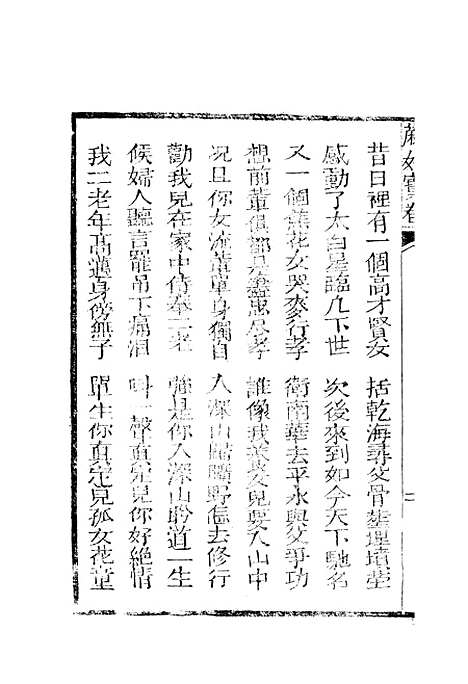 麻姑寶卷
二
昔日裡有一個高才賢女 括乾海尋父骨塟埋墳塋
感動了太白星臨凡下世 次後來到如今天下馳名
又一個花女哭麥行孝 衛南華去平永與父爭功
想前輩俱都是盡忠尽孝 誰像我養女兒要入山中
况且你女流輩單身獨自 入深山歸曠野怎去修行
勸我兒在家中侍奉二老 強是你入深山盼道一生
候婦人聽言罷吊下痛泪 叫一聲直定兒你好絕情
我二老年高邁身傍無子 單生你直定兒孤女花堂